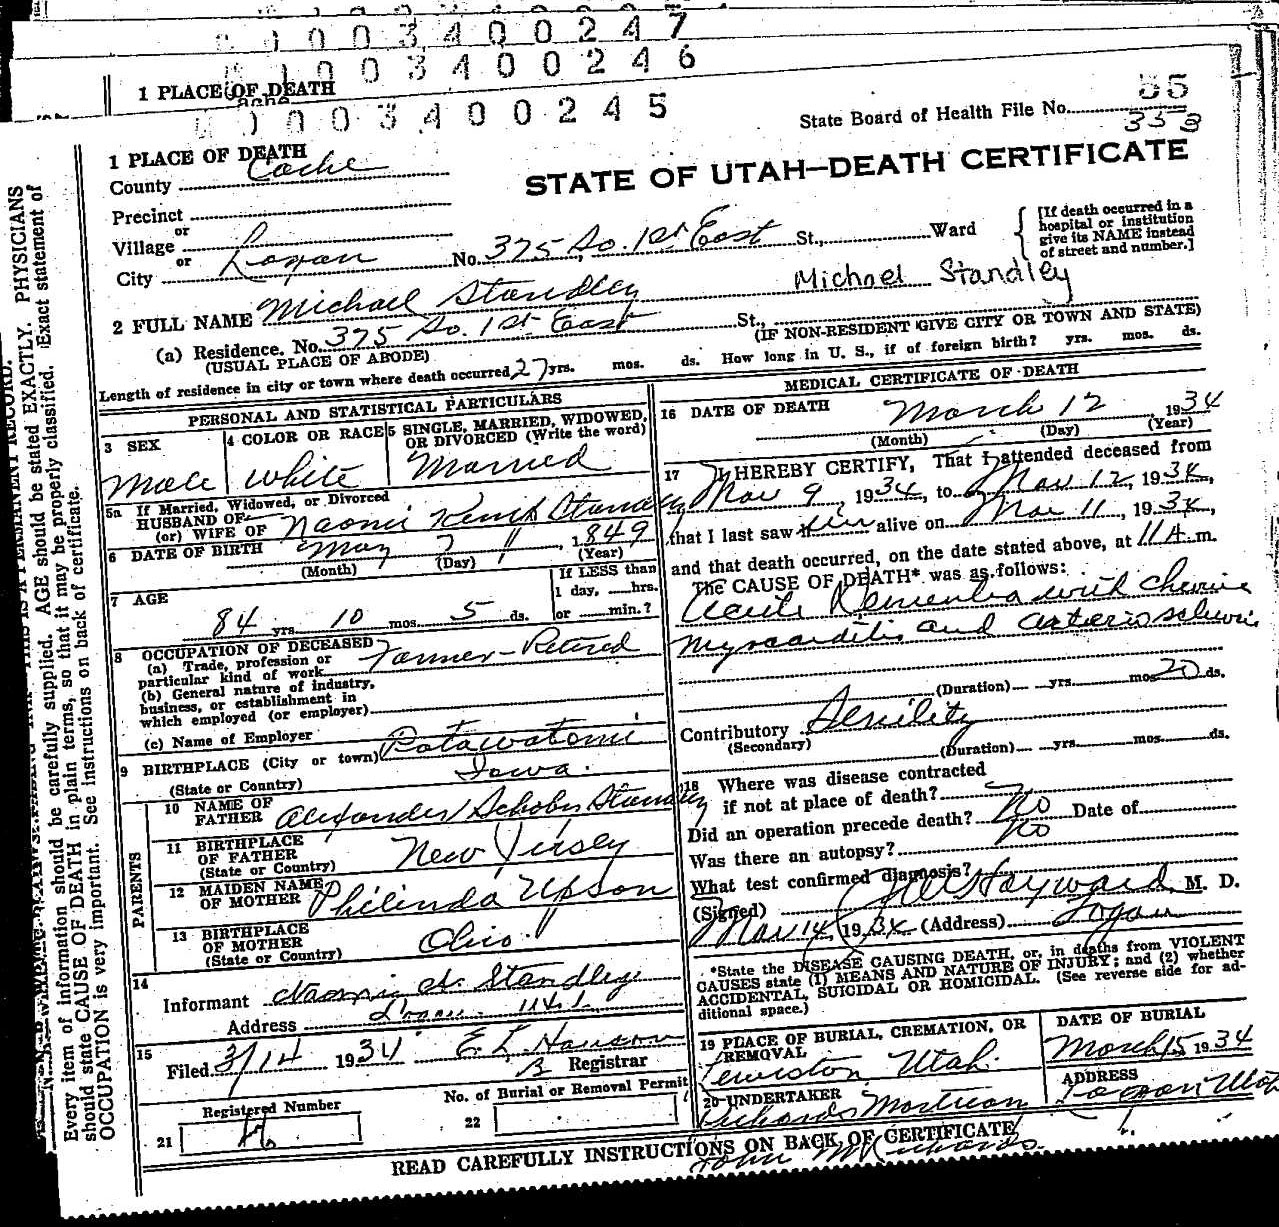 0 0 3 4 0 0 2 4 7
1 0 0 3 4 0 0 2 4 6
1 PLACE OF DEATH
0 0 0 3 4 0 0 2 4 5
State Board of Health File No. 55
353
1 PLACE OF DEATH
County Cache
STATE OF UTAH—DEATH CERTIFICATE
Precinct
or
Village
or
City Logan No. 375 So. 1st East St., Ward
[If death occurred in a
hospital or institution
give its NAME instead
of street and number.]
2 FULL NAME Michael Standley Michael Standley
(a) Residence. No. 375 So. 1st East St.,
(USUAL PLACE OF ABODE) (IF NON-RESIDENT GIVE CITY OR TOWN AND STATE)
Length of residence in city or town where death occurred 27 yrs. mos. ds. How long in U. S., if of foreign birth? yrs. mos. ds.
PERSONAL AND STATISTICAL PARTICULARS
3 SEX
Male
4 COLOR OR RACE
White
5 SINGLE, MARRIED, WIDOWED,
OR DIVORCED (Write the word)
Married
5a If Married, Widowed, or Divorced
HUSBAND OF
(or) WIFE OF Naomi Kemp Standley
6 DATE OF BIRTH May 7 1849
(Month) (Day) (Year)
7 AGE
84 yrs. 10 mos. 5 ds.
If LESS than
1 day, hrs.
or min.?
8 OCCUPATION OF DECEASED
(a) Trade, profession or
particular kind of work Farmer-Retired
(b) General nature of industry,
business, or establishment in
which employed (or employer)
(c) Name of Employer
9 BIRTHPLACE (City or town) Potawatomi
(State or Country) Iowa.
PARENTS
10 NAME OF
FATHER Alexander Schober Standley
11 BIRTHPLACE
OF FATHER
(State or Country) New Jersey
12 MAIDEN NAME
OF MOTHER Philinda Upson
13 BIRTHPLACE
OF MOTHER
(State or Country) Ohio.
14
Informant Naomi K. Standley
Address Logan Utah
15
Filed 3/14 1934 E L Hanson
Registrar
No. of Burial or Removal Permit
Registered Number
21
22
MEDICAL CERTIFICATE OF DEATH
16 DATE OF DEATH March 12, 1934
(Month) (Day) (Year)
17 I HEREBY CERTIFY, That I attended deceased from
Mar 9, 1934, to Mar 12, 1934,
that I last saw him alive on Mar 11, 1934,
and that death occurred, on the date stated above, at 11 A. m.
The CAUSE OF DEATH* was as follows:
Acute Dementia with chronic
myocarditis and arterio sclerosis
(Duration) yrs. mos. 20 ds.
Contributory Senility
(Secondary)
(Duration) yrs. mos. ds.
18 Where was disease contracted
if not at place of death?
Did an operation precede death? No Date of
Was there an autopsy? No
What test confirmed diagnosis?
(Signed) Hayward, M. D.
Mar 14, 1934 (Address) Logan
*State the DISEASE CAUSING DEATH, or, in deaths from VIOLENT
CAUSES state (1) MEANS AND NATURE OF INJURY; and (2) whether
ACCIDENTAL, SUICIDAL OR HOMICIDAL. (See reverse side for ad-
ditional space.)
19 PLACE OF BURIAL, CREMATION, OR
REMOVAL
Lewiston Utah.
DATE OF BURIAL
March 15, 1934
20 UNDERTAKER
Richards Mortuary
ADDRESS
Logan Utah
READ CAREFULLY INSTRUCTIONS ON BACK OF CERTIFICATE
John M Richards.
Every item of information should be carefully supplied. AGE should be stated EXACTLY. PHYSICIANS
should state CAUSE OF DEATH in plain terms, so that it may be properly classified. Exact statement of
OCCUPATION is very important. See instructions on back of certificate.